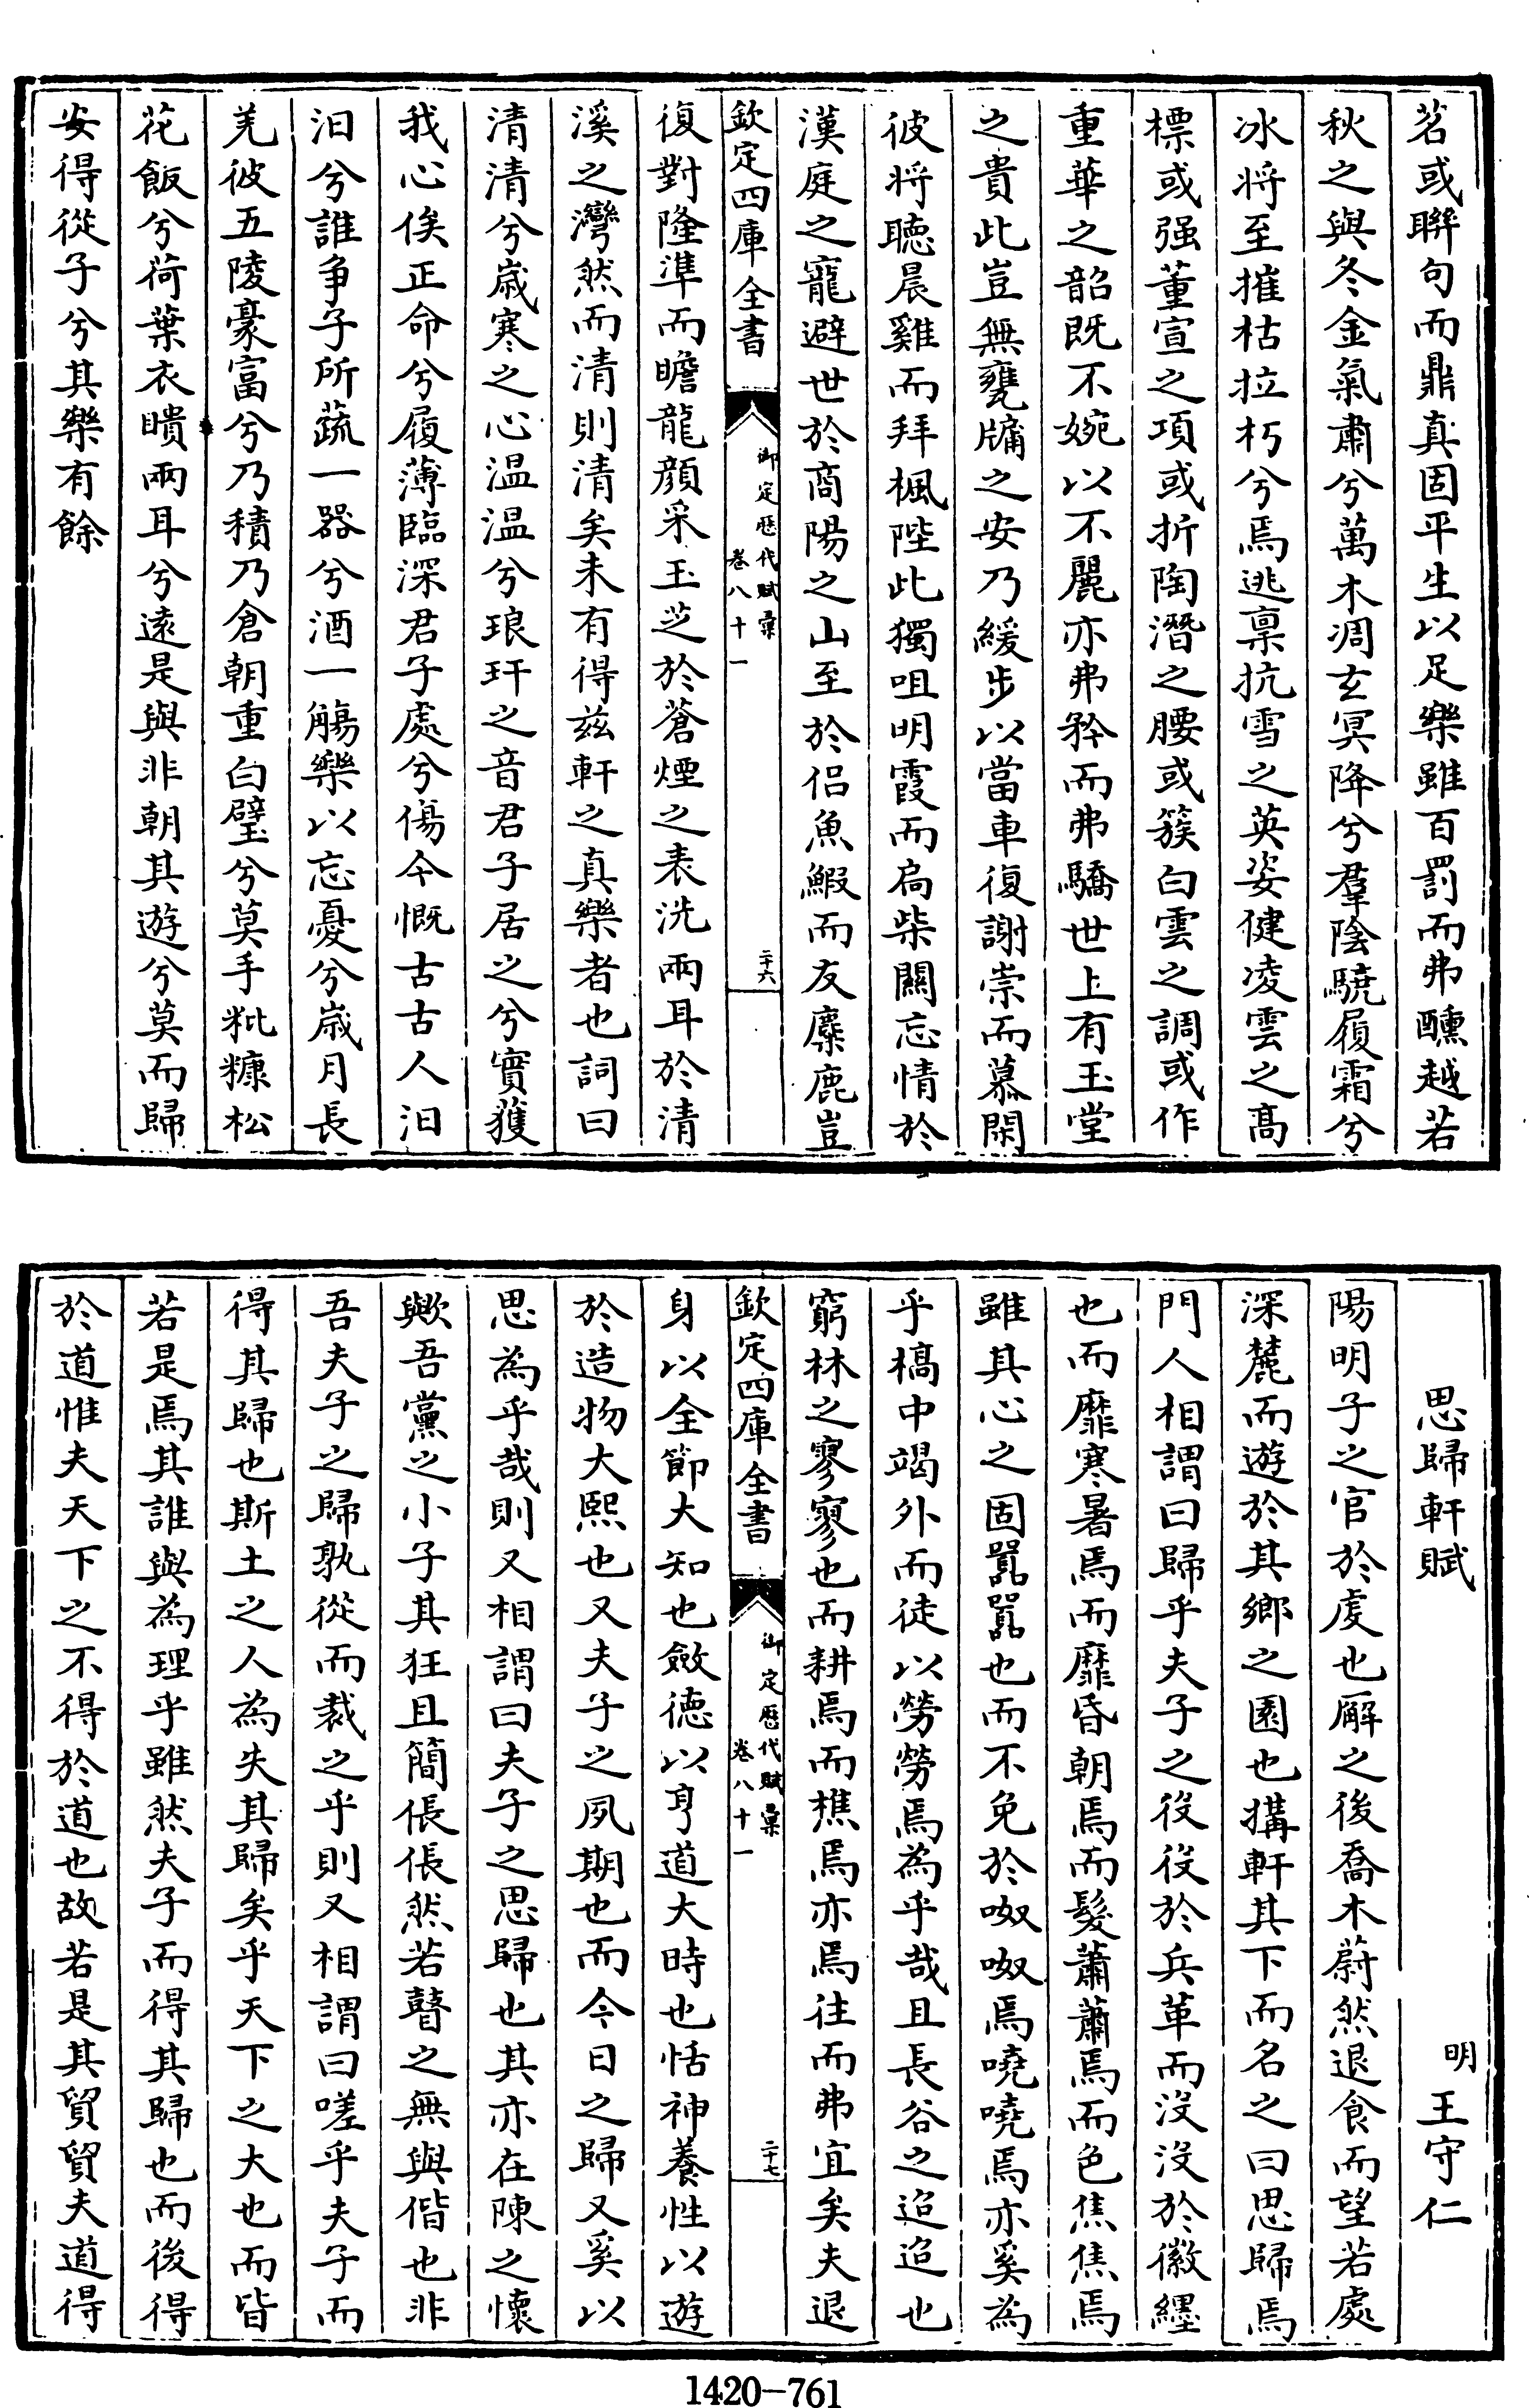 茗或聯句而鼎真固平生以足樂雖百罰而弗醺越若
秋之與冬金氣肅兮萬木凋玄冥降兮羣陰驍履霜兮
冰將至摧枯拉朽兮焉逃稟抗雪之英姿健凌雲之高
標或强董宣之項或折陶潛之腰或簇白雲之調或作
重華之韶既不婉以不麗亦弗矜而弗驕世上有玉堂
之貴此豈無甕牖之安乃緩步以當車復謝崇而慕閑
彼將聽晨雞而拜楓陛此獨咀明霞而扃柴關忘情於
漢庭之寵避世於商陽之山至於侣魚鰕而友麋鹿豈
欽定四庫全書
御定歷代賦彙
卷八十一
二十六
復對隆準而瞻龍顔采玉芝於蒼煙之表洗兩耳於清
溪之灣然而清則清矣未有得兹軒之真樂者也詞曰
清清兮歲寒之心温温兮琅玕之音君子居之兮實獲
我心俟正命兮履薄臨深君子處兮傷今慨古古人汩
汩兮誰争子所蔬一器兮酒一觴樂以忘憂兮歲月長
羌彼五陵豪富兮乃積乃倉朝重白璧兮莫手粃糠松
花飯兮荷葉衣聵兩耳兮遠是與非朝其遊兮莫而歸
安得從子兮其樂有餘
思歸軒賦
明
王守仁
陽明子之官於虔也廨之後喬木蔚然退食而望若處
深麓而遊於其鄉之園也搆軒其下而名之曰思歸焉
門人相謂曰歸乎夫子之役役於兵革而没没於徽纆
也而靡寒暑焉而靡昏朝焉而髮蕭蕭焉而色焦焦焉
雖其心之固囂囂也而不免於呶呶焉嘵嘵焉亦奚為
乎槁中竭外而徒以勞勞焉為乎哉且長谷之迢迢也
窮林之寥寥也而耕焉而樵焉亦焉往而弗宜矣夫退
欽定四庫全書
御定歷代賦彙
卷八十一
二十七
身以全節大知也斂徳以亨道大時也恬神養性以遊
於造物大熙也又夫子之夙期也而今日之歸又奚以
思為乎哉則又相謂曰夫子之思歸也其亦在陳之懷
歟吾黨之小子其狂且簡倀倀然若瞽之無與偕也非
吾夫子之歸孰從而裁之乎則又相謂曰嗟乎夫子而
得其歸也斯土之人為失其歸矣乎天下之大也而皆
若是焉其誰與為理乎雖然夫子而得其歸也而後得
於道惟夫天下之不得於道也故若是其貿貿夫道得
1420-761